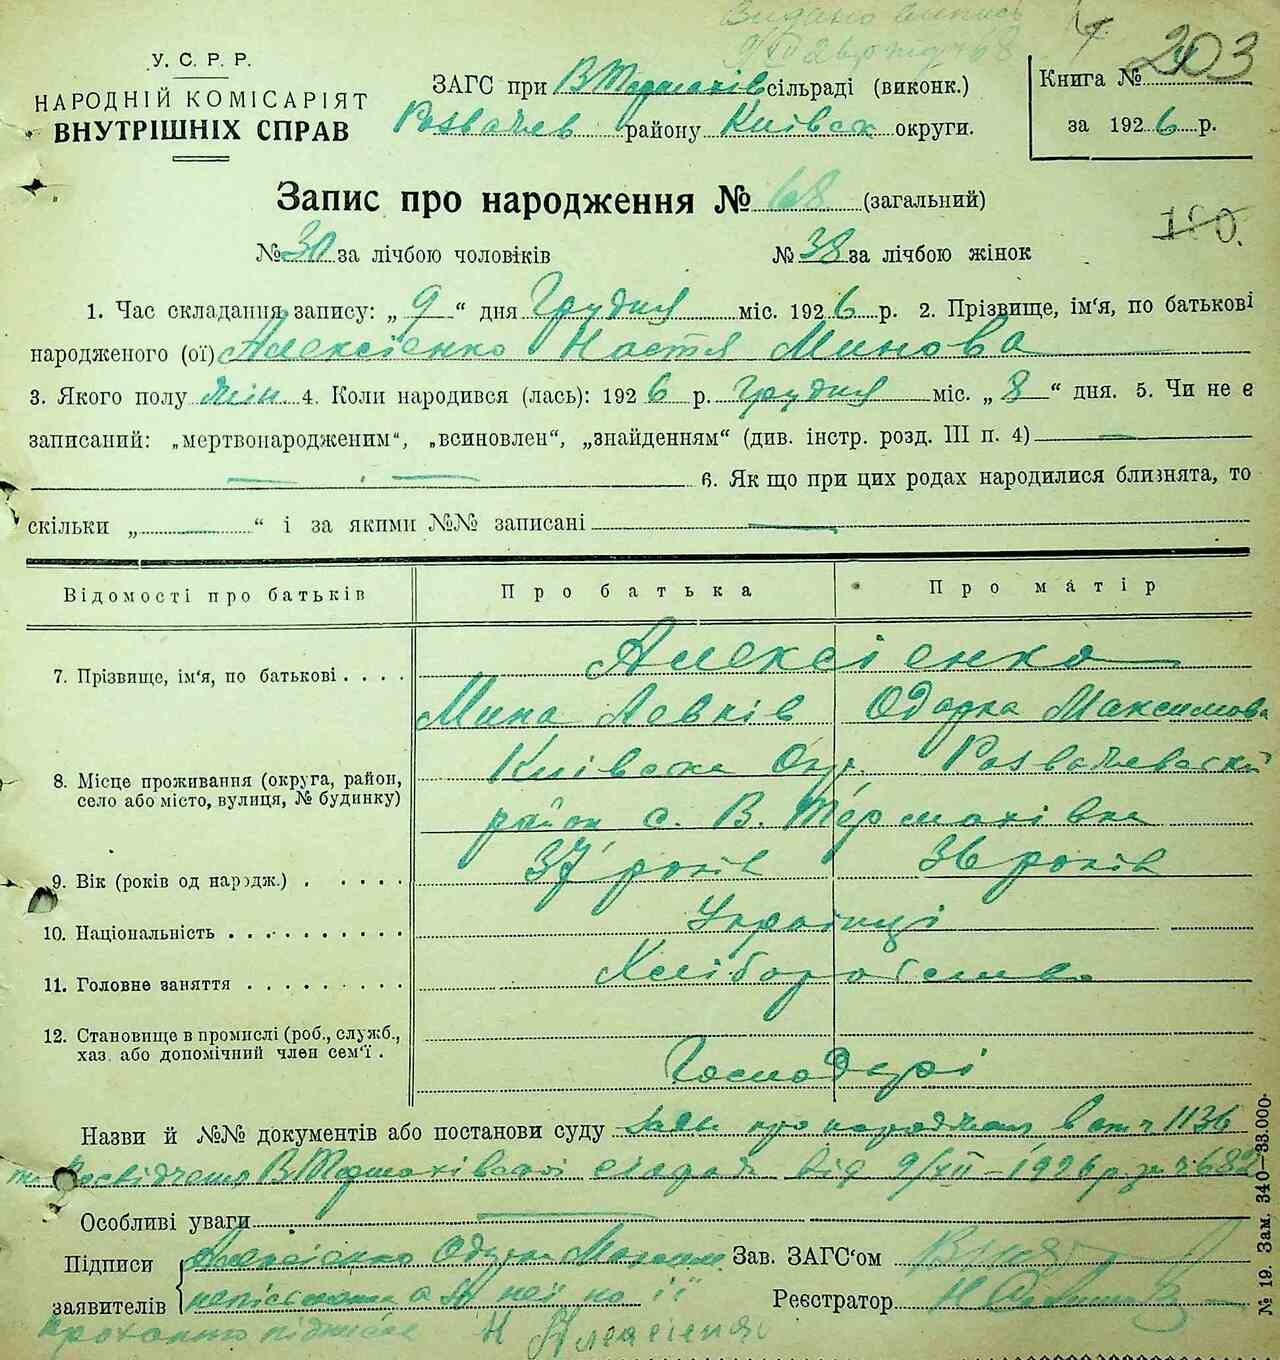 Видано випись
У. С. Р. Р.
НАРОДНІЙ КОМІСАРІЯТ
ВНУТРІШНІХ СПРАВ
ЗАГС при В Термахів сільраді (виконк.)
Розважев району Київськ округи.
Книга №
203
за 1926 р.
Запис про народження № 68 (загальний)
190.
№ 30 за лічбою чоловіків № 38 за лічбою жінок
1. Час складання запису: „ 9 “ дня Грудня міс. 1926 р. 2. Прізвище, ім‘я, по батькові
народженого (ої) Алексієнко Настя Минова
3. Якого полу жін 4. Коли народився (лась): 1926 р. Грудня міс. „ 8 “ дня. 5. Чи не є
записаний: „мертвонародженим“, „всиновлен“, „знайденням“ (див. інстр. розд. III п. 4) —
— — 6. Як що при цих родах народилися близнята, то
скільки „ — “ і за якими №№ записані —
Відомості про батьків Про батька Про матір
7. Прізвище, ім‘я, по батькові . . . . Алексієнко
Мина Левків Одарка Максимова
8. Місце проживання (округа, район, село або місто, вулиця, № будинку) Київська Окр. Розважевский
район с. В. Термахівка
9. Вік (років од народж.) . . . . . 37 років 36 років
10. Національність . . . . . . . . . . Українці
11. Головне заняття . . . . . . . . . Хліборобство
12. Становище в промислі (роб., служб., хаз. або допомічний член сем‘ї . Господарі
Назви й №№ документів або постанови суду про народження 1136
та посвідчення В Термахівської сільради від 9/XII – 1926 р. за № 682
Особливі уваги —
Підписи заявителів Алексієнко Одарка Максим
неписьменна а за неї на її
прохання підписав Н Алексієнко
Зав. ЗАГС‘ом
Реєстратор
№ 19. Зам. 340—33.000.